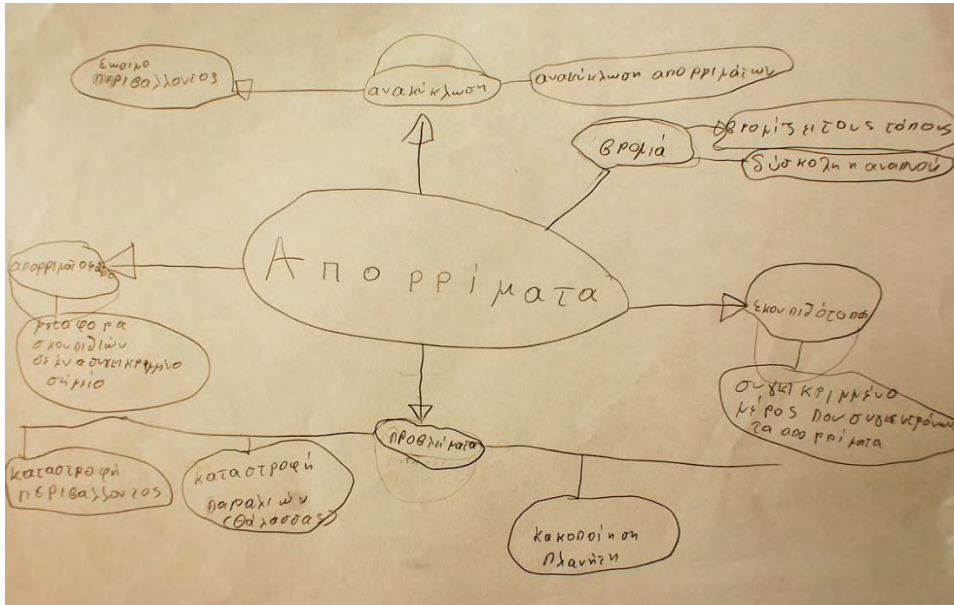 Σώσιμο
περιβάλλοντος
ανακύκλωση
ανακύκλωση απορριμάτων
βρομιά
βρομίζει τους τόπους
δύσκολη η αναπνοή
Απορρίματα
μεταφορά
σκουπιδιών
σε ένα συγκικριμμένο
σήμείο
σκουπιδότοπο
συγκικριμμένο
μέρος που
τα απορρίματα
προβλήματα
καταστροφή
περιβάλλοντος
καταστροφή
παραλιών
(θάλασσας)
κακοποίηση
πλανήτη